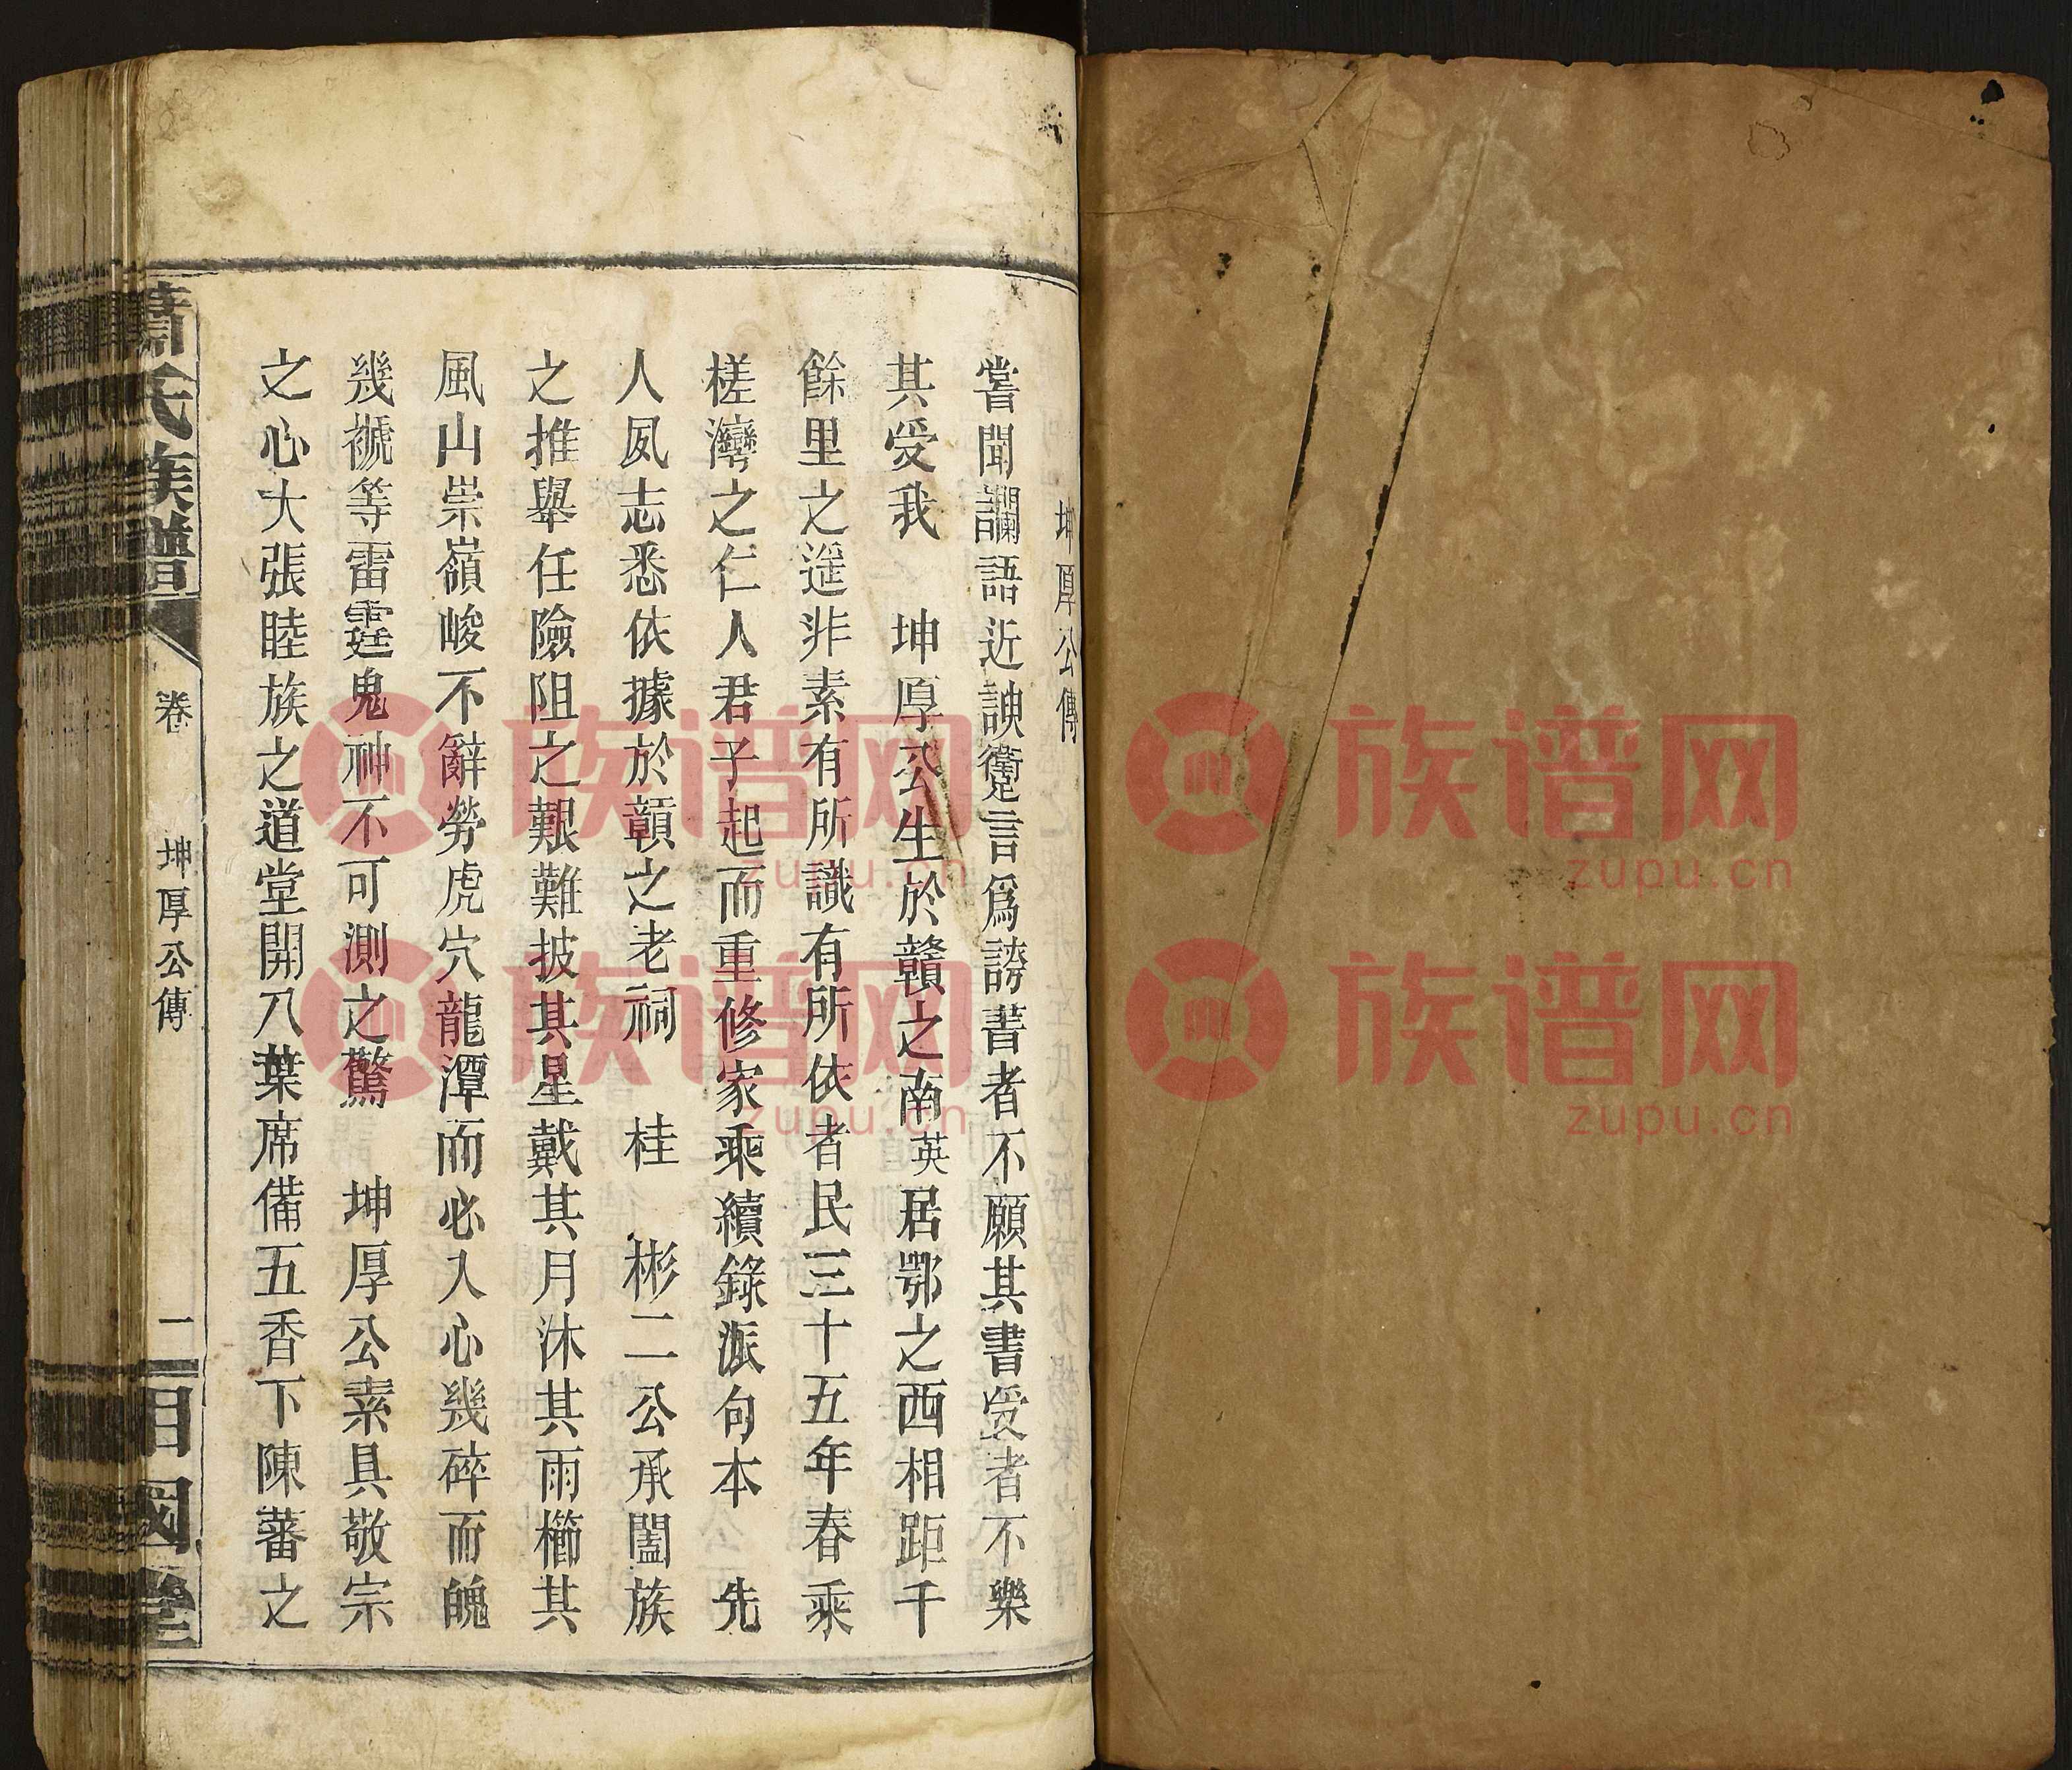 坤厚公傳
嘗聞讕語近諛躗言爲謗書者不願其書受者不樂
其受我 坤厚公生於贛之南英居鄂之西相距千
餘里之遥非素有所識有所依者民三十五年春乘
槎灣之仁人君子起而重修家乘續錄派句本 先
人夙志悉依據於贛之老祠 桂 彬二公承闔族
之推舉任險阻之艱難披其星戴其月沐其雨櫛其
風山崇嶺峻不辭勞虎穴龍潭而必入心幾碎而魄
幾褫等雷霆鬼神不可測之驚 坤厚公素具敬宗
之心大張睦族之道堂開八葉席備五香下陳蕃之
蕭氏族譜
卷 坤厚公傳 一
相國堂
族谱网
zupu.cn
族谱网
zupu.cn
族谱网
zupu.cn
族谱网
zupu.cn